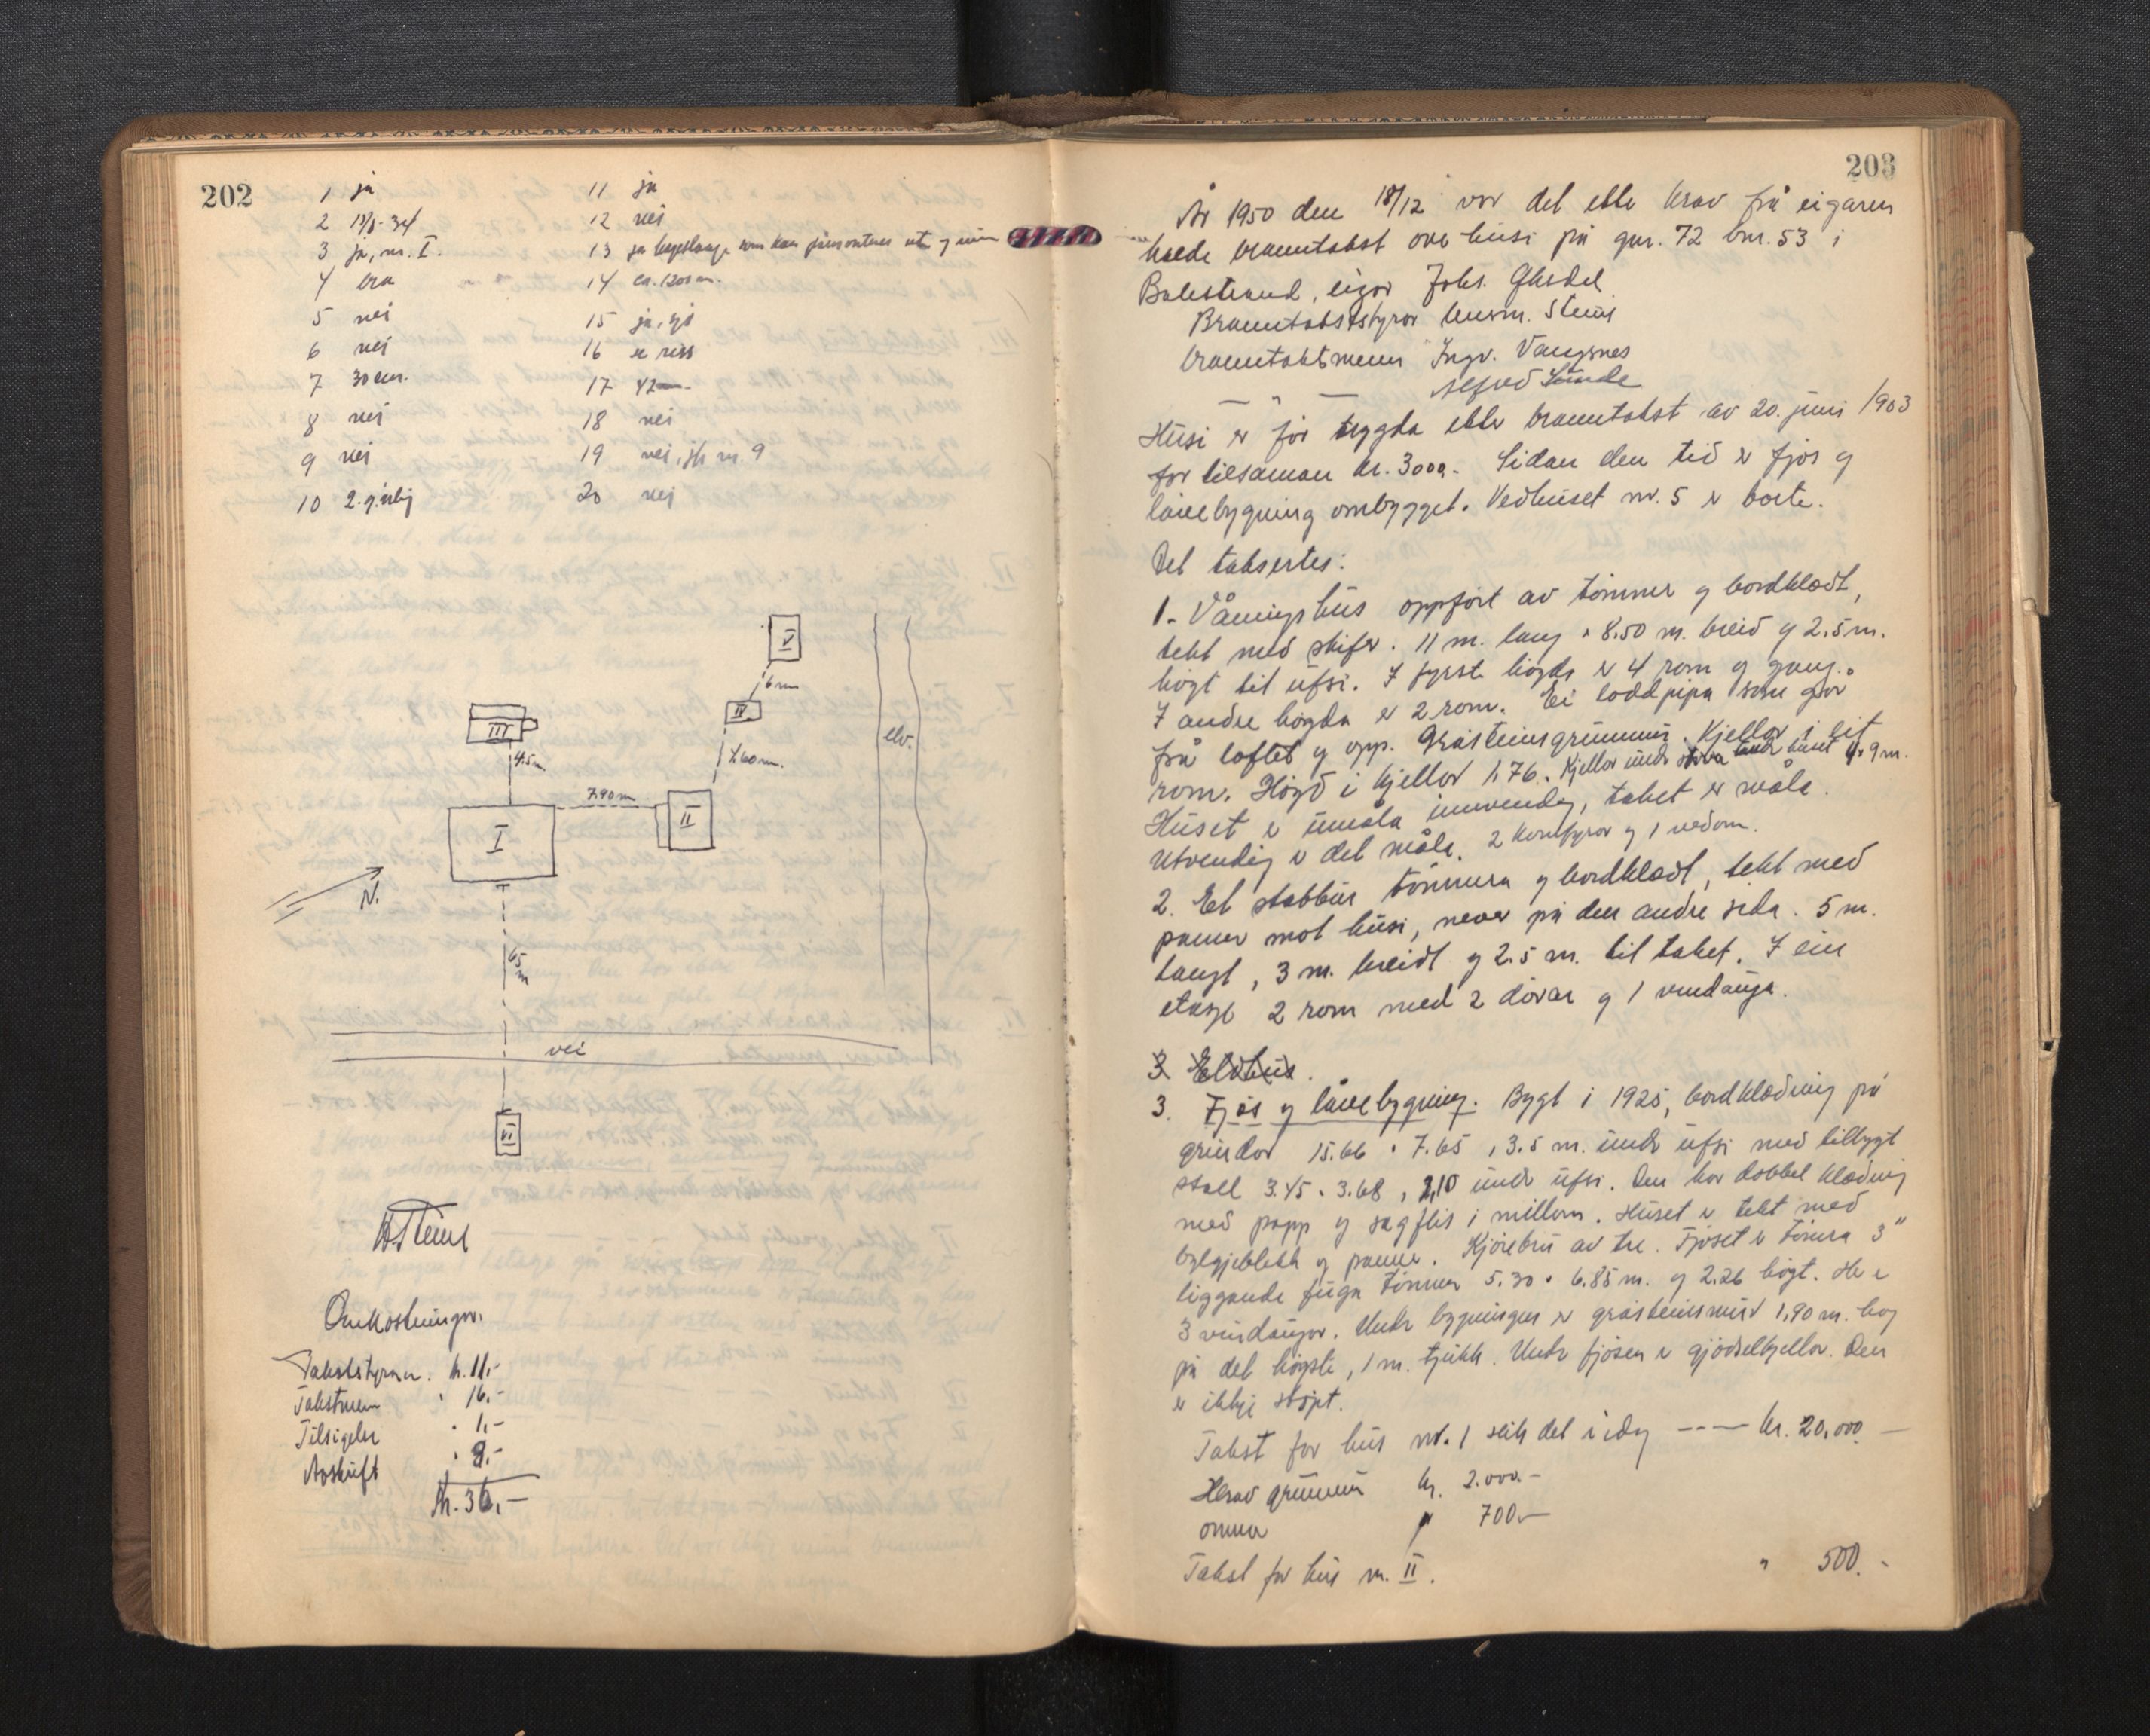 202
1 ja
2 18/8-34
3 ja, nr. I.
4 bra
5 nei
6 nei
7 30 cm.
8 nei
9 nei
10 2.
11 ja
12 nei
13 ja som kan ut og
14 ca. 1200 m.
15 ja,
16 se riss
17 42
18 nei
19 nei, jfr nr. 9
20 nei
V
6 m
IV
7,60 m.
elv.
III
4.5 m
7.90 m
I
II
N.
65 m
vei
VI
Omkostningar.
Takststyrar. kr. 11.-
Takstmenn " 16.-
Tilsigelse " 1.-
Avskrift " 8.-
kr. 36.-
203
År 1950 den 18/12 var det etter krav frå eigaren
halde branntakst over husi på gnr. 72 bnr. 53 i
Balestrand, eigar Johs.
Branntakststyrar lensm. Steine
branntakstmenn Ingv. Vangsnes
Alfred Sunde
Husi er før trygda etter branntakst av 20. juni 1903
for tilsaman kr. 3000.- Sidan den tid er fjos og
låvebygning ombygget. Vedhuset nr. 5 er borte.
Det takseres:
1. Våningshus oppført av tømmer og bordklædt,
tekt med skifer. 11 m. lang × 8.50 m. breid og 2.5 m.
høgt til ufsi. I fyrste høgda er 4 rom og gang.
I andre høgda er 2 rom. Ei loddpipa som går
frå loftet og opp. Gråsteinsgrunnmur. Kjellar i eit
rom. Høgd i kjellar 1,76. Kjellar under stova under huset 4×9 m.
Huset er umåla innvendig, taket er måla.
Utvendig er det måla. 2 komfyrar og 1 vedomn.
2. Et stabbur tømmra og bordklædt, tekt med
panner mot husi, never på den andre sida. 5 m.
langt, 3 m. breidt og 2.5 m. til taket. I ein
etasje 2 rom med 2 dørar og 1 vindauga.
3 Eldhus.
3. Fjøs og låvebygning. Bygt i 1925, bordklædning på
grindar 15.66 × 7.65, 3.5 m. under ufsi med tilbygt
stall 3.45 × 3.68, 2,10 under ufsi. Den har dobbel klædning
med papp og sagflis i millom. Huset er tekt med
bylgjeblekk og panner. Kjørebru av tre. Fjøset er tømra 3"
liggande fuga tømmer 5.30 × 6.85 m. og 2.26 høgt. Her er
3 vindaugor. Under bygningen er gråsteinsmur 1,90 m. høg
på det høgste, 1 m. tjukk. Under fjøsen er gjødselkjellar. Den
er ikkje støpt.
Takst for hus nr. 1 slik det er idag ---- kr. 20,000.-
Herav grunnmur kr. 2.000.-
omnar " 700.-
Takst for hus nr. II. " 500.-